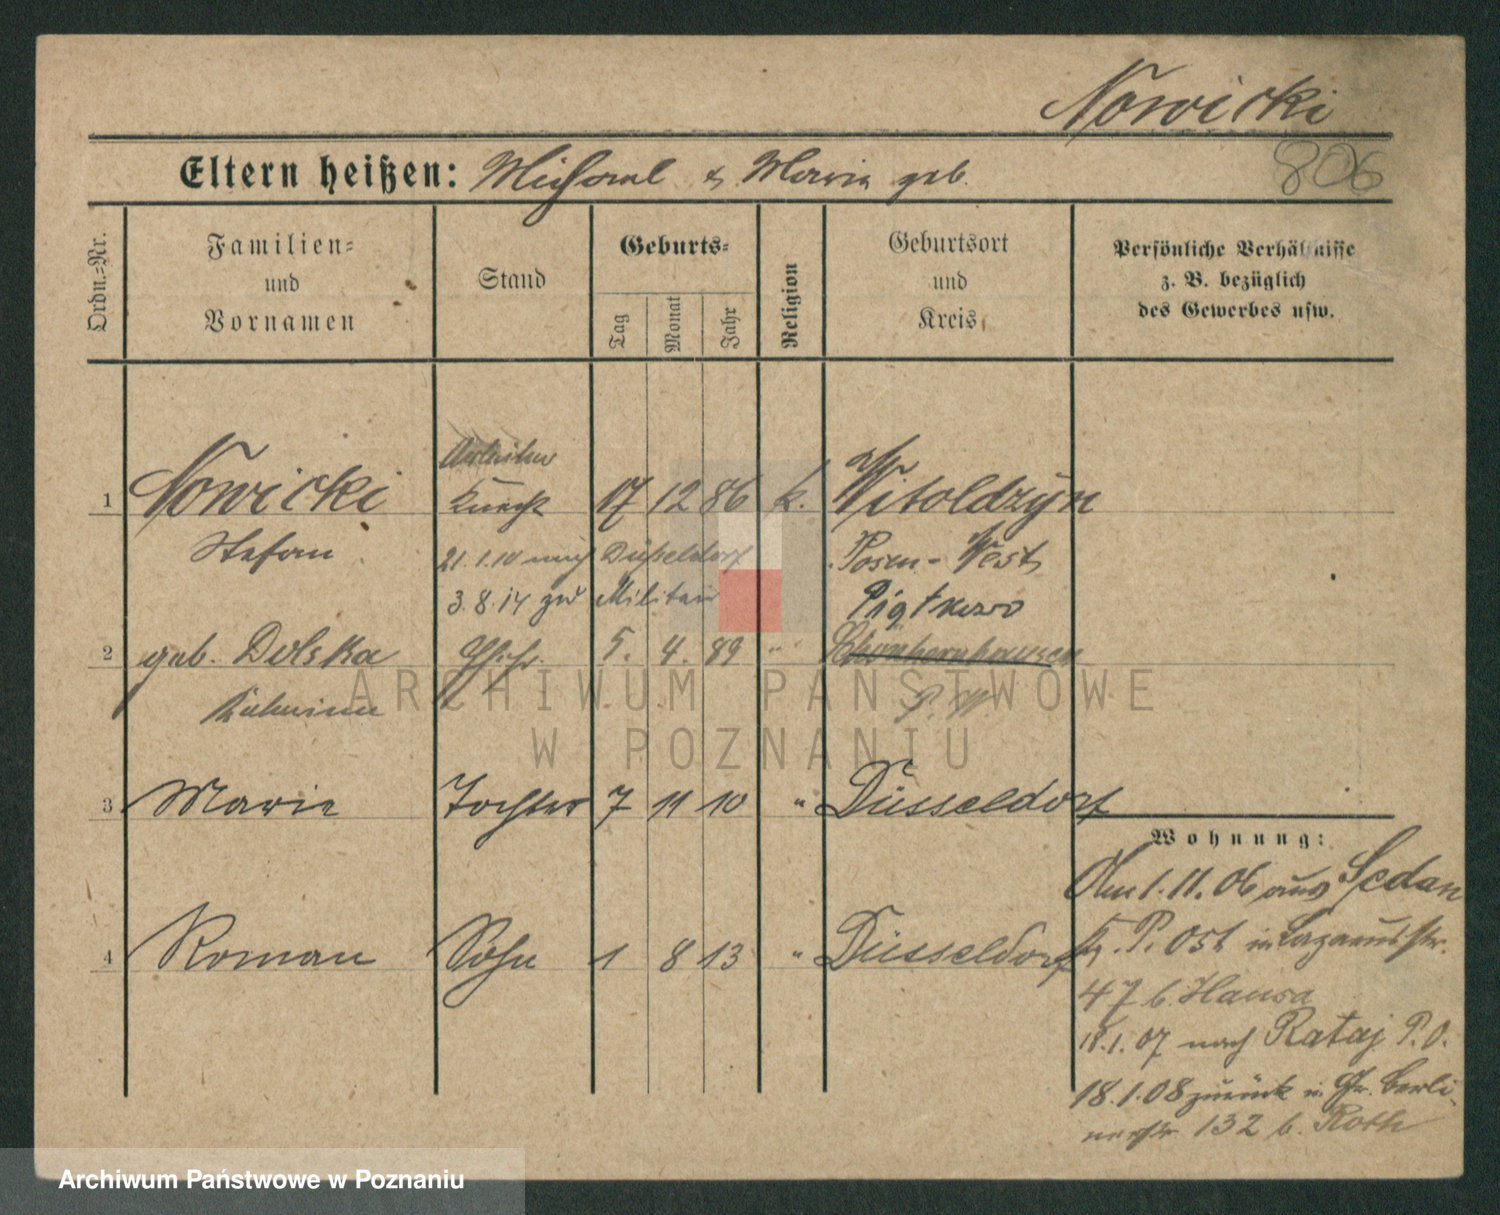 Nowicki
806
Eltern heißen: Michael & Maria geb.
Ordn.=Nr.
Familien=
und
Vornamen
Stand
Geburts=
Tag
Monat
Jahr
Religion
Geburtsort
und
Kreis
Persönliche Verhältnisse
z. B. bezüglich
des Gewerbes usw.
Arbeiter
1 Nowicki Knecht 17 12 86 k. Witoldzyn
Stefan 21.1.10 nach Düsseldorf Posen-West
3.8.14 zum Militär Piątkowo
2 geb. Dolska Ehefr. 5. 4. 89 " Schönherrnhausen
P. W.
3 Marie Tochter 7 11 10 " Düsseldorf
4 Roman Sohn 1 8 13 " Düsseldorf
Wohnung:
Am 1.11.06 aus Sedan
Kr. P. Ost in Lazarusstr.
47 b. Hansa
18.1.07 nach Rataj P.O.
18.1.08 zurück in Gr. Berli-
nerstr. 132 b. Roth
ARCHIWUM PAŃSTWOWE
W POZNANIU
Archiwum Państwowe w Poznaniu